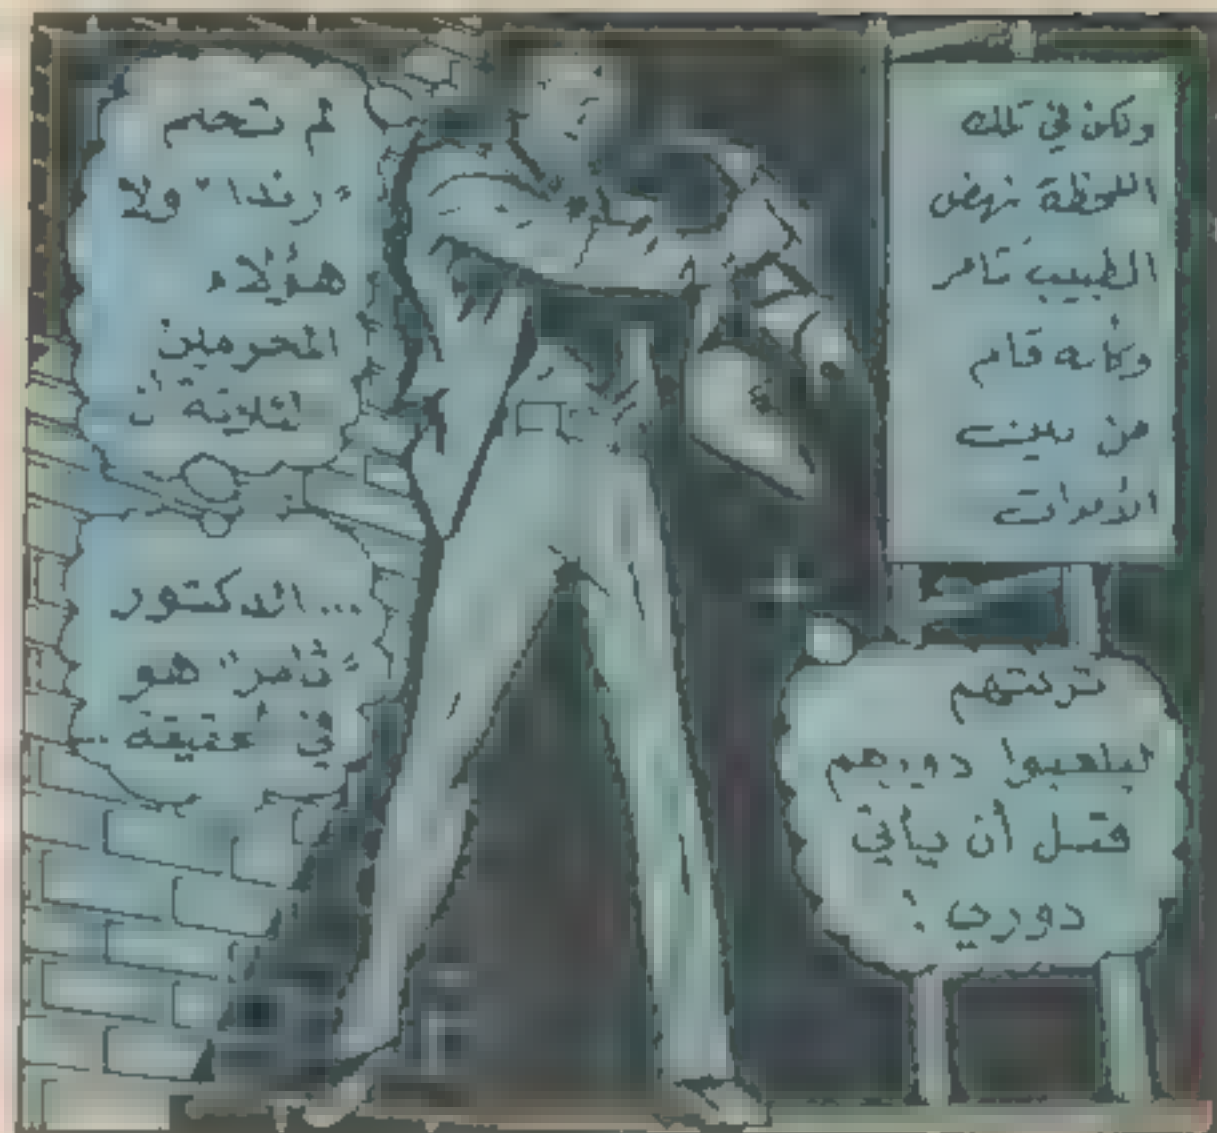 ولكن في تلك
اللحظة نهض
الطبيب تامر
وكأنه قام
من بين
الأموات
تركتهم
ليلعبوا دورهم
قبل أن يأتي
دوري :
لم تحلم
"رندا" ولا
هؤلاء
المجرمين
الثلاثة أن
... الدكتور
"تامر" هو
في حقيقة ..